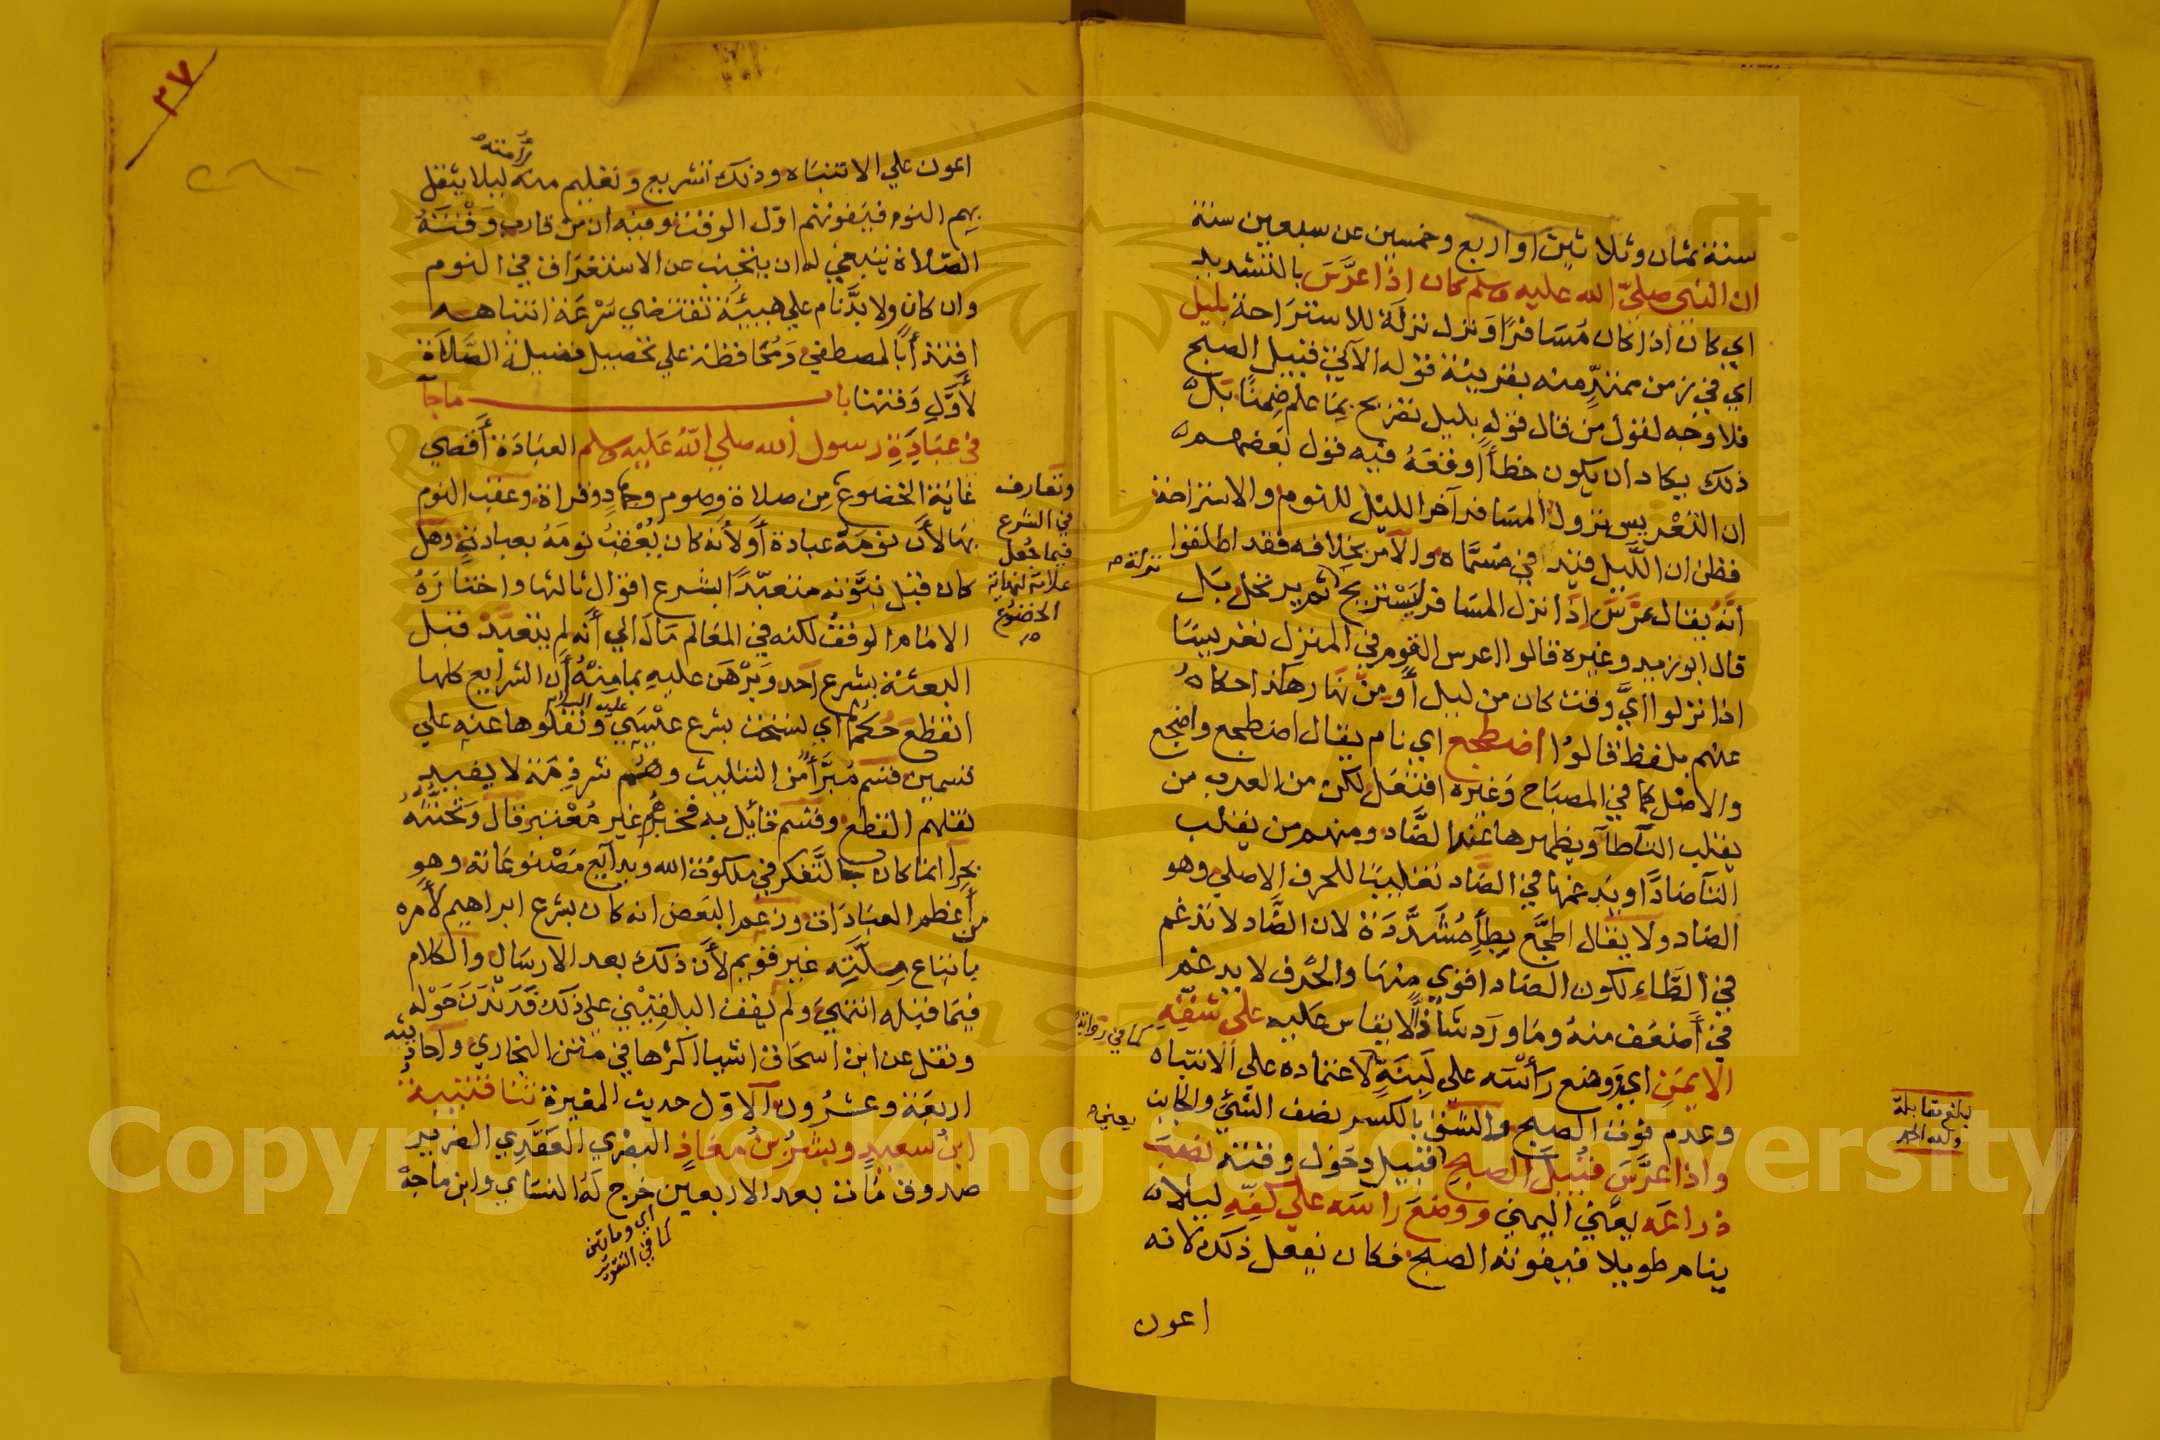 سنة ثمان وثلاثين او اربع وخمسين عن سبعين سنة
ان النبي صلى الله عليه وسلم كان اذا عرَّسَ بالتشديد
اي كان اذا كان مُسَافرًا وَنزل نزلَة للاستراحة بليل
اي في زمن ممتدٍّ منه بقرينة قوله الآتي قبيل الصبح
فلا وَجه لقول من قال قوله بليل تصريح بمَا علم ضِمنًا بَل
ذلك يكاد ان يكون خطأً اوقعَهُ فيه قول بَعضهم
ان التَعْريس نزول المسَافر آخر الليْل للنوم والاستراحة
فظن ان الليل قيد في مُسَمَّاه والأمر بخلافه فقد اطلقوا
نزلة صح
انَّه يُقال عرَّسَ اذا نزل المسَافر ليَسْتريح ثم يرتحل بَل
قال ابو زيد وغيره قالوا اعرس القوم في المنزل تعريسًا
اذا نزلوا ايَّ وقت كان من ليل أو من نهَار هكذا حكاهُ
عنهم بلفظ قالوُا اضطجع اي نام يقال اضطجع واضجع
والاصْل كما في المصبَاح وَغيره افتعَل لكن من العرب من
يقلب التآ طآ ويظهرها عند الضَّاد ومنهم من يقلب
التآ ضادًا ويدغمها في الضاد تغليبًا للحرف الاصلي وهو
الضاد ولا يقال اطجَّع بطآءٍ مُشَدَّدَة لان الضَّاد لا تدغم
في الطَّاءِ لكون الضاد اقوي منهَا والحَرف لا يدغم
في أضعَف منهُ ومَا ورَد شاذٌّ لا يقاس عَليه علي شقِّهِ
كما في رواية
الايمَن اي ووضع رأسَه علي لَبِنَةٍ لاعتماده علي الانتباه
وعدم فوت الصبح والشق بالكسر نصف الشيْ والجانب
يعني صح
واذا عرَّسَ قُبَيلَ الصبح قبيل دخول وقته نصَبَ
ذراعَه يعني اليمني ووضعَ راسَه علي كفّهِ ليلا
ينام طويلا فيفوته الصبح فكان يفعل ذلك لانه
اعون
بلغ مقابلة
ولله الحمد
٣٧
اعون علي الانتباه وذلك تشريع وتعليم منه ليلا يثقل
لأمته صح
بهم النوم فيَفوتهم اوّل الوقت وفيه ان من قارب وَقْتَهُ
الصّلاة ينبغي له ان يتجنب عن الاستغرَاق في النوم
وان كان ولا بدَّ نام علي هيئة تقتضي سُرْعَة انتباهه
اقتدَآءً بالمصطفي وَمُحَافظة علي تحصيل فضيلة الصَّلاة
لأوَّلِ وَقتها باب ماجآ
في عبَادَةِ رسول الله صلي اللهُ عَليه وسلم العبَادَة أقصي
غايَة الخضوع من صلاة وصوم وجهادٍ وقراة وعقب النوم
وتعارف
في الشرع
فيما جعل
علامة لنهاية
الخضوع
صح
بهَا لأن نومَهُ عبادة أولأنه كان يُعْقبُ نومَهُ بعبادتهِ وهل
كان قبْل نبوّته متعبّدًا بشرع اقوال ثالثها واختارَهُ
الامام الوقف لكنه في المعَالم مَالَ الي أنه لم يتعبّدْ قبل
البعثة بشرع أحد وَبَرْهَن عليهِ بما منْهُ أن الشرايع كلها
انقطعَ حُكمُها اي نسخت بشرع عيْسَي ونقلوها عنه علي
عليه السلام
قسمين قسم مُبَرَّأ من التثليث وهُم شرذمَة لا يفيد
نقلهم القطع وقسْم قائل به فخبرهُم غير مُعْتبر قال وتحنثهُ
بحِرآ انما كان للتَّفكر في ملكوُت الله وبدايع مَصْنوعَاته وهو
من أعظم العبَادَات وزعْم البَعض انه كان بشرع ابراهيم لأمره
باتباع مِلّتَه غير قويم لأن ذلك بعد الارسَال والكلام
فيمَا قبله انتهي ولم يقف البلقيْني علي ذلك فدَندَن حَوْله
ونقل عن ابن اسحَاق اشيا اكثرها في متن البخاري وآحاديثه
اربعَة وعشرُون الاوّل حديث المغيرة ثنا قتيبة
ابنُ سعيد وبشرُ بنُ معَاذ البصْري العَقَدي الضرير
صدوق مَات بعد الاربعين خرج لهُ النسَاي وابن ماجة
اي ومايتين
كما في التقريب
Copyright © King Saud University
1957